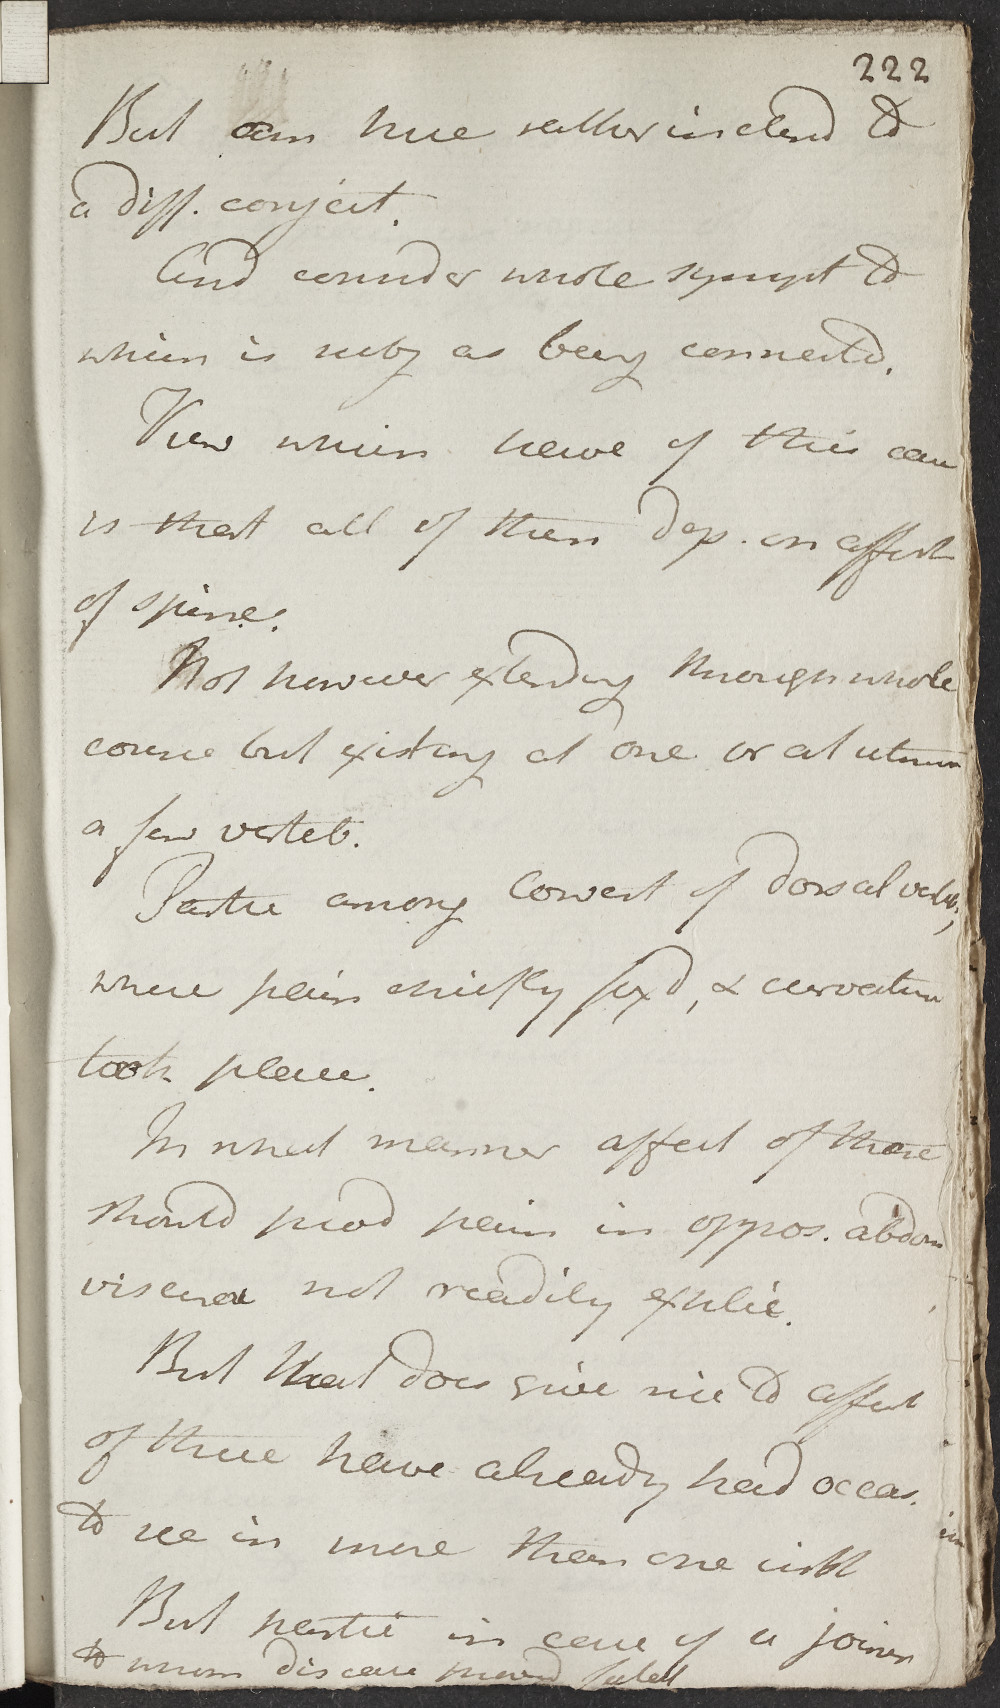 222
But am here rather inclend to
a diff. conject.
And consider whole sympt to
which is subj as being connectd.
View which have of this case
is that all of them dep. on affect
of spine.
Not however extending through whole
course but existing at one or at utmost
a few verteb.
Partic among lowest of dorsal verteb,
where pain chiefly fix'd, & curvature
took place.
In what manner affect of these
should prod pain in oppos. abdom
viscera not readily explic.
But that does give rise to affect
of these have already had occas.
to see in more than one inst
But partic in case of a joiner
to whom disease proved fatal